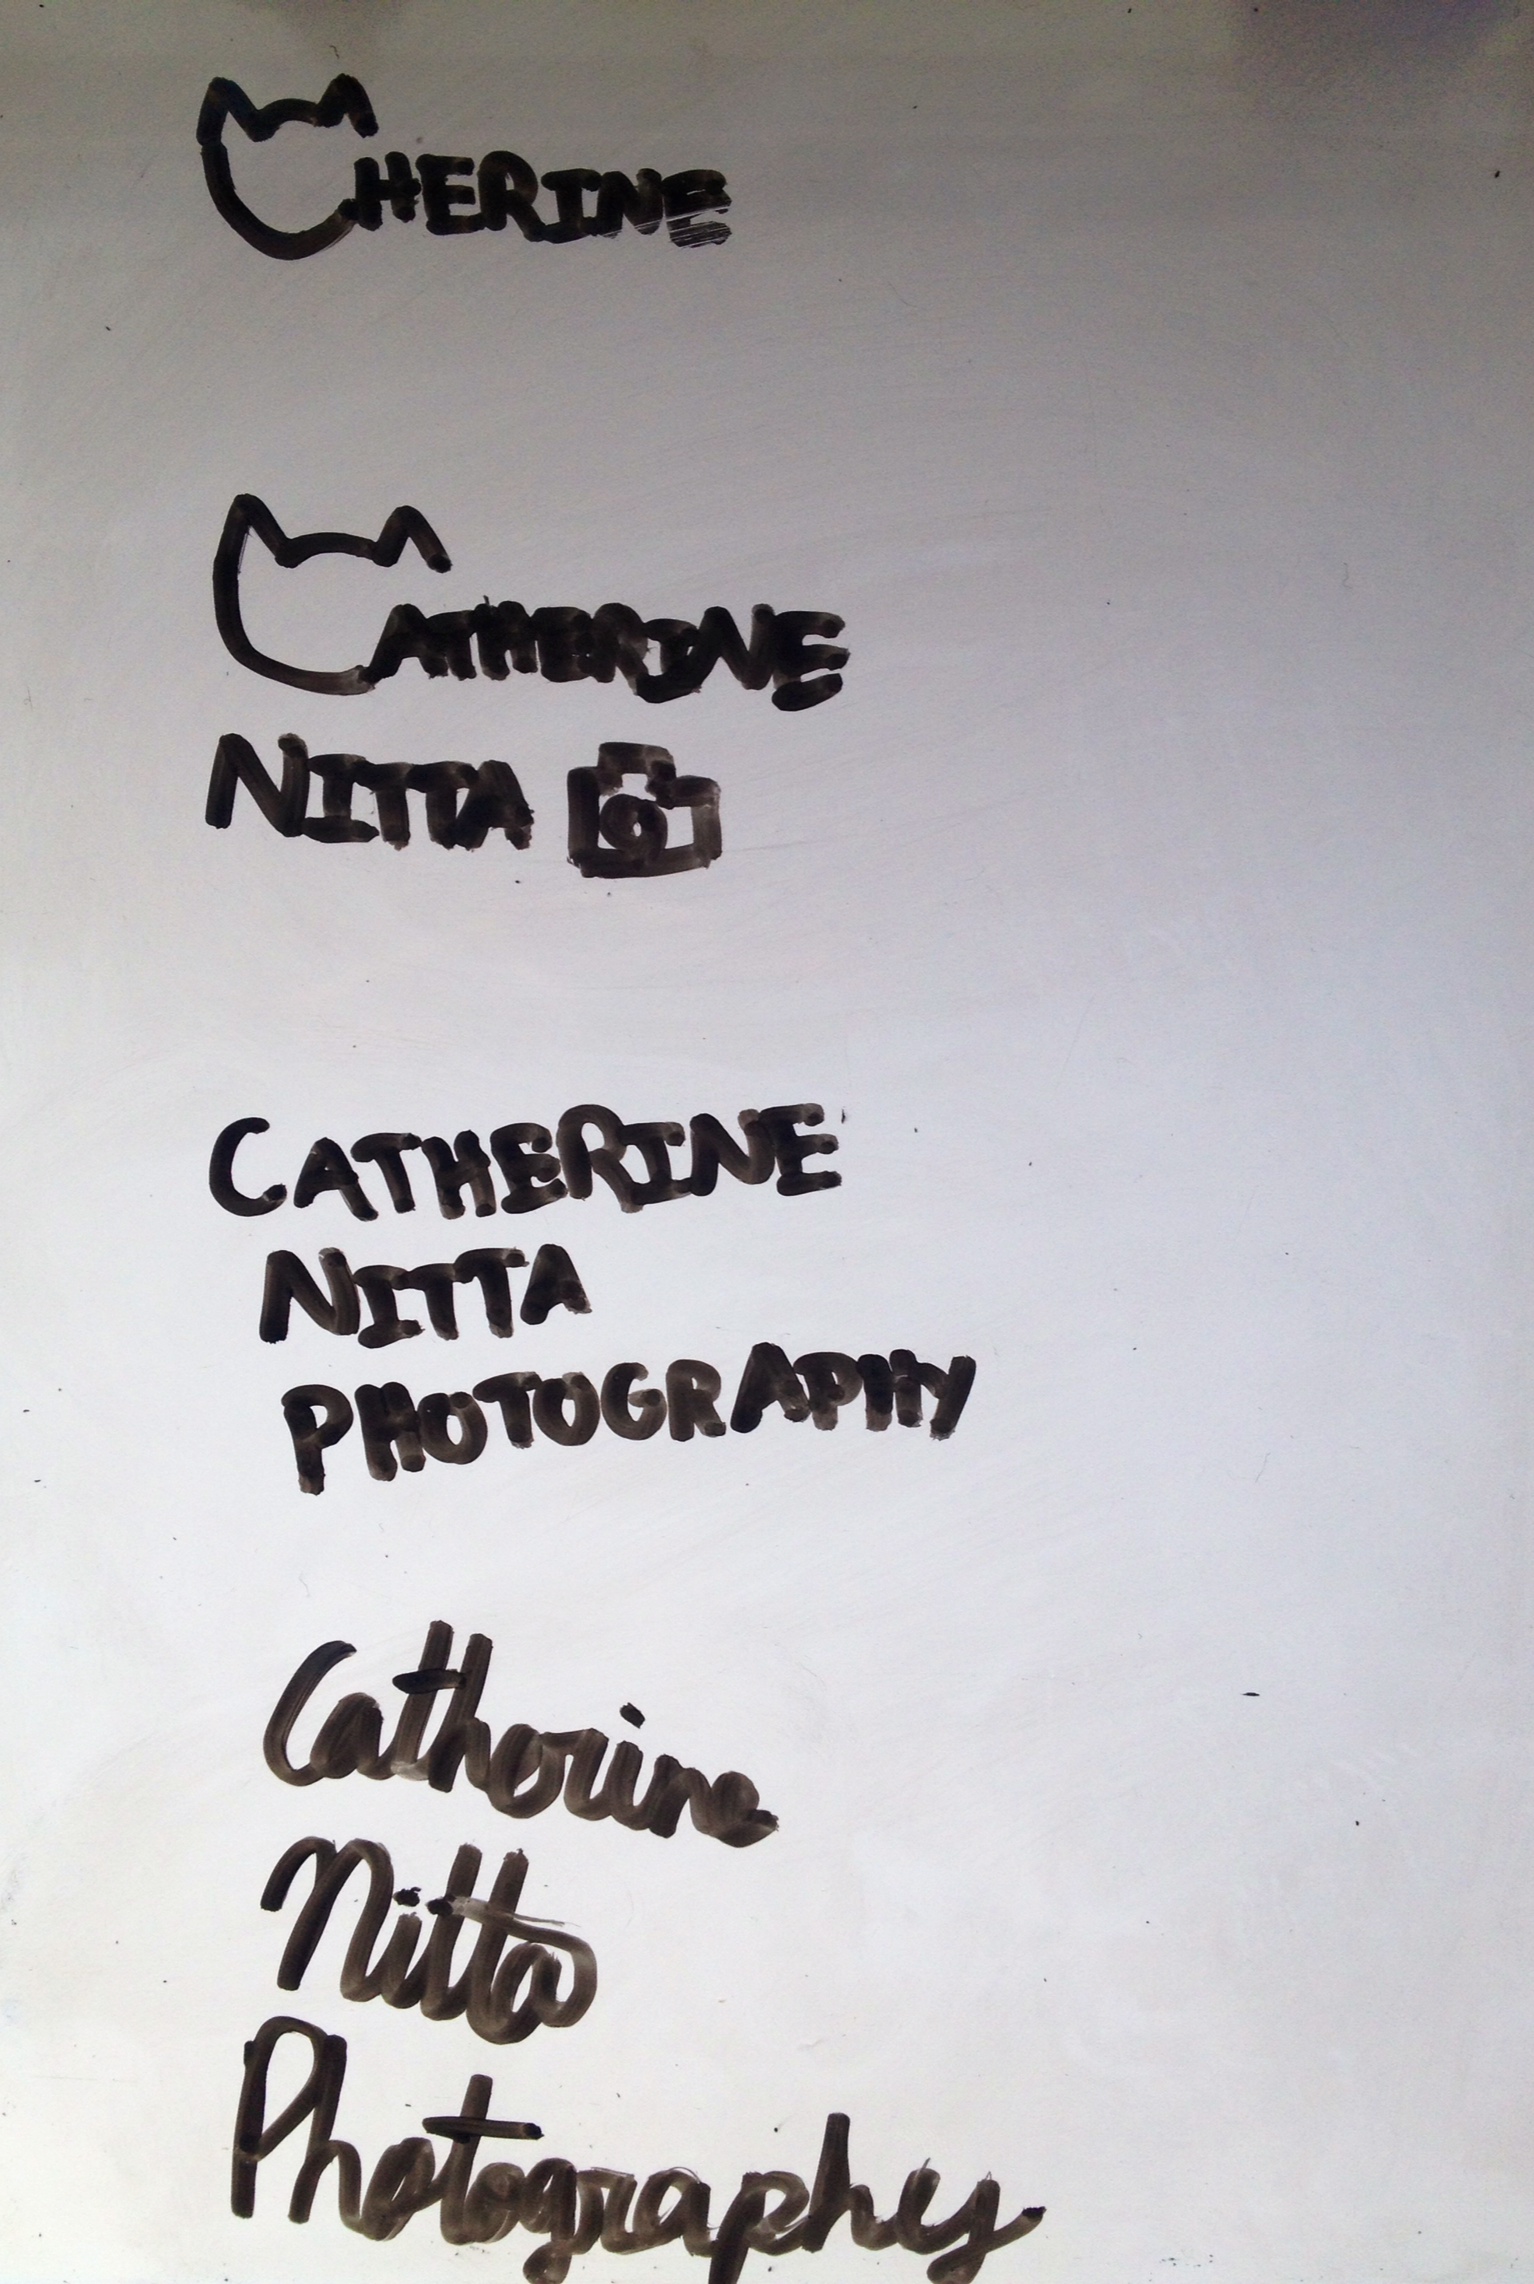 CHERINE
CATHERINE
NITTA
CATHERINE
NITTA
PHOTOGRAPHY
Catherine
Nitta
Photography